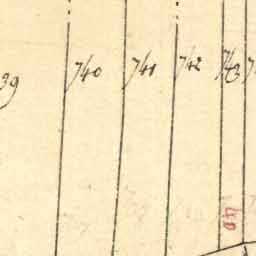 39 740 741 742 743